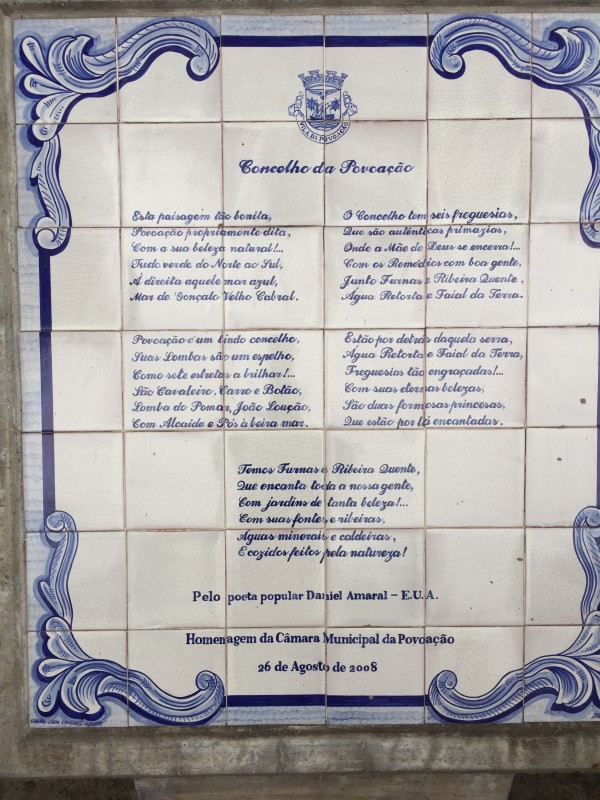 VILA DA POVOAÇÃO
Concelho da Povoação
Esta paisagem tão bonita,
Povoação propriamente dita,
Com a sua beleza natural!...
Tudo verde do Norte ao Sul,
A direita aquele mar azul,
Mar de Gonçalo Velho Cabral.
Povoação é um lindo concelho,
Suas Lombas são um espelho,
Como sete estrelas a brilhar!...
São Cavaleiro, Carro e Botão,
Lomba do Pomar, João Loução,
Com Alcaide e Pós à beira mar.
O Concelho tem seis freguesias,
Que são autênticas primazias,
Onde a Mãe de Deus se encerra!...
Com os Remédios com boa gente,
Junto Furnas e Ribeira Quente,
Água Retorta e Faial da Terra.
Estão por detrás daquela serra,
Água Retorta e Faial da Terra,
Freguesias tão engraçadas!...
Com suas eternas belezas,
São duas formosas princesas,
Que estão por lá encantadas.
Temos Furnas e Ribeira Quente,
Que encanta toda a nossa gente,
Com jardins de tanta beleza!...
Com suas fontes e ribeiras,
Águas minerais e caldeiras,
E cozidos feitos pela natureza!
Pelo poeta popular Daniel Amaral – E.U.A.
Homenagem da Câmara Municipal da Povoação
26 de Agosto de 2008